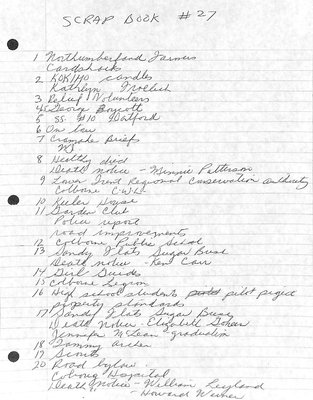 SCRAP BOOK #27
1 Northumberland Farmers
Cardsharks
2 candles
Kathlyn Froelich
3 Relief Volunteers
4 George Boycott
5 SS #10
6 On
7 Cramahe Briefs
8 Healthy
Death notice - Minnie Patterson
9 Lower Trent Regional Conservation Authority
Colborne C.W.L.
10 Keeler House
11 Garden Club
Police report
road improvements
12 Colborne Public School
13 Sandy Flats Sugar Bush
Death notice - Ken Carr
14 Girl Guides
15 Colborne Legion
16 High school students pilot project
property standards
17 Sandy Flats Sugar Bush
Death Notice - Elizabeth
Jennifer McLean graduation
18 Tammy Archer
19 Scouts
20 Road bylaw
Cobourg Hospital
Death Notice - William Leyland
" - Howard